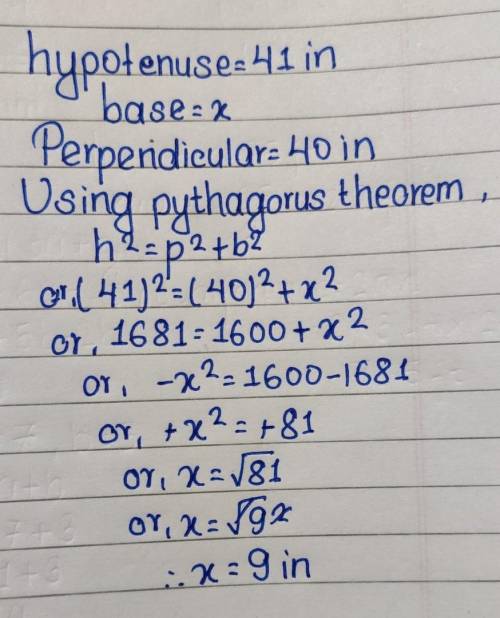 hypotenuse=41 in
base=x
Perpendicular=40 in
Using pythagorus theorem,
h²=p²+b²
or,(41)²=(40)²+x²
or, 1681=1600+x²
or, -x²=1600-1681
or, +x²=+81
or, x=√81
or, x=√9²
∴x=9 in